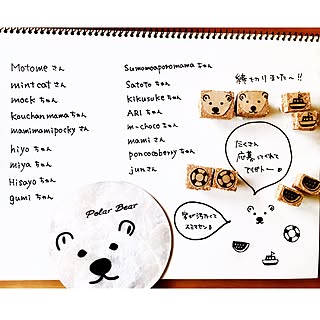 Motome さん
mint cat さん
mock ちゃん
Kouchanmama ちゃん
mamimamipocky さん
hiyo ちゃん
miya ちゃん
Hisayo ちゃん
gumi ちゃん
Sumomoaporomama ちゃん
Satoto ちゃん
kikusuke ちゃん
ARI ちゃん
m-choco ちゃん
mami さん
poncocoberry ちゃん
jun さん
締切りました〜!!
たくさん
応募してくれて
字が汚なくて
スミマセン
Polar Bear